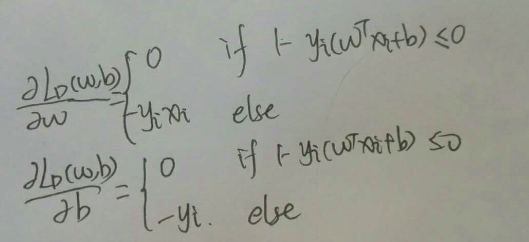 ∂L_D(w,b)/∂w = { 0 if 1- y_i(w^T x_i+b) ≤0
-y_i x_i else
∂L_D(w,b)/∂b = { 0 if 1- y_i(w^T x_i+b) ≤0
-y_i. else